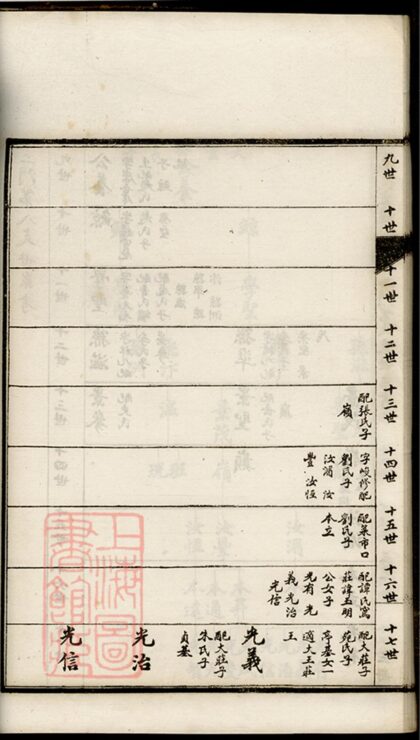 九世
十世
十一世
十二世
十三世
十四世
十五世
十六世
十七世
配張氏子
嶺
字峻修配
劉氏子
汝涓 汝
豐 汝恆
配菜市口
劉氏子
本立
配譚氏窩
公女子
光有 光
義 光治
光信
配大莊子
苑氏子
亭基女一
適大王莊
王
光義
配大莊子
朱氏子
貞基
光治
光信
上海圖
書館藏